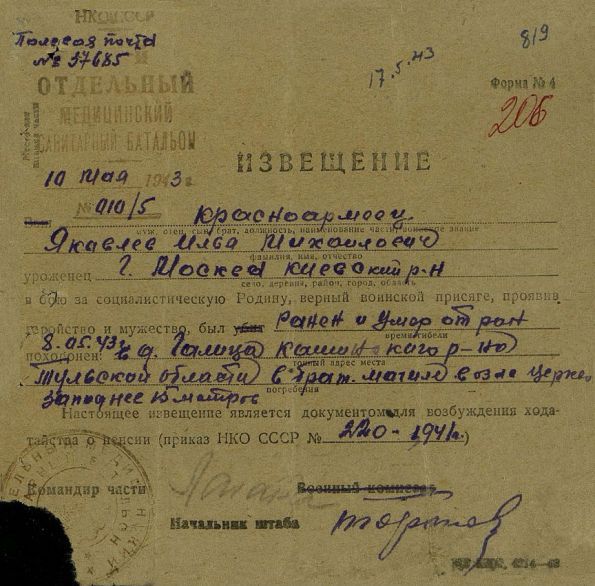 НКО СССР
Полевая почта
№ 37685
ОТДЕЛЬНЫЙ
МЕДИЦИНСКИЙ
САНИТАРНЫЙ БАТАЛЬОН
819
17.5.43
Форма № 4
206
ИЗВЕЩЕНИЕ
10 мая 1943 г.
№ 010/5
красноармеец
муж, отец, сын, брат, должность, наименование части, воинское звание
Яковлев Илья Михайлович
фамилия, имя, отчество
уроженец г. Москва Киевский р-н
село, деревня, район, город, область
в бою за социалистическую Родину, верный воинской присяге, проявив
геройство и мужество, был ранен и умер от ран
время гибели
8.05.43г
похоронен: в д. Галица р-на
точный адрес места
Тульской области в брат. могиле возле церкви
погребения
западнее 15 метров
Настоящее извещение является документом для возбуждения хода-
тайства о пенсии (приказ НКО СССР № 220-1941г.)
Командир части
Военный комиссар
Начальник штаба